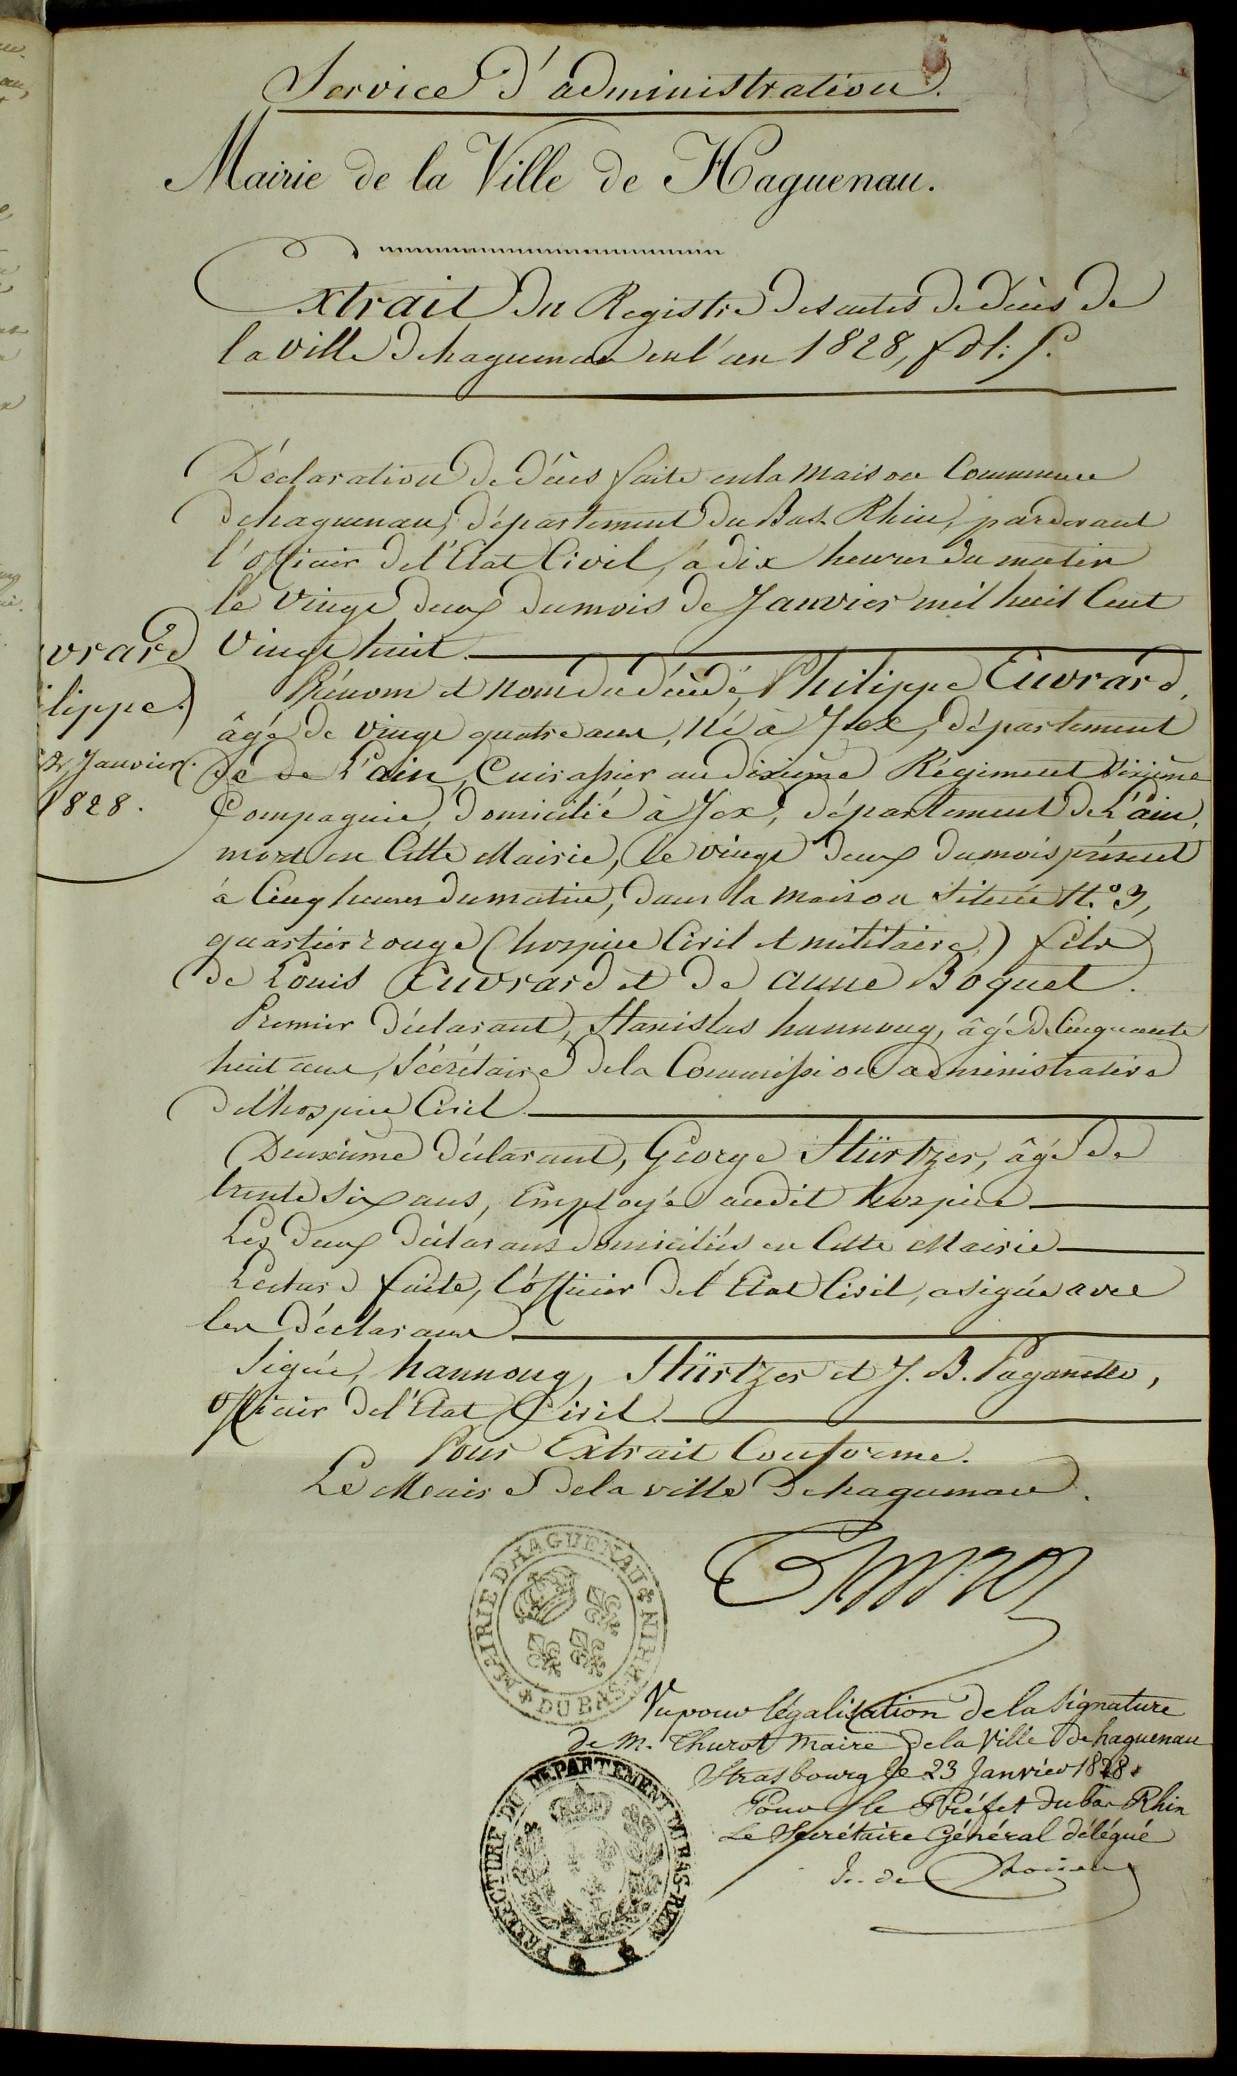 Service d'administration.
Mairie de la Ville de Haguenau.
Extrait du Registre des actes de décès de
la ville de haguenau en l'an 1828, fol:
Déclaration de décès faite en la maison Commune
de haguenau, département du Bas Rhin, pardevant
l'officier de l'Etat Civil, à dix heures du matin
le vingt deux du mois de Janvier mil huit Cent
vingt huit.
vrard
ilippe.
22, Janvier.
1828.
Prénom et nom du décédé, Philippe Euvrard,
âgé de vingt quatre ans, né à Jex, département
de de L'ain, Cuirassier au dixième Régiment sixième
Compagnie, domicilié à Jex, département de L'ain,
mort en Cette Mairie, le vingt deux du mois présent
à Cinq heures du matin, dans la maison située N.º 3,
quartier rouge (hospice Civil et militaire) fils
de Louis Euvrard et de anne Boquet.
Premier déclarant, Stanislas hannong, âgé de Cinquante
huit ans, Sécrétaire de la Commission administrative
de l'hospice Civil.
Deuxième déclarant, George Stürtzer, âgé de
trente six ans, Employé audit hospice
Les deux déclarans domiciliés en Cette Mairie
Lecture faite, l'officier de l'Etat Civil, a signé avec
les déclarans
Signé, hannong, Stürtzer et J. B. Paganetto,
officier de l'Etat Civil.
Pour Extrait Conforme.
Le Maire de la ville de haguenau.
MAIRIE D'HAGUENAU DU BAS-RHIN
Vu pour légalisation de la signature
de M. Thurot Maire de la Ville de haguenau
Strasbourg le 23 Janvier 1828.
Pour le Préfet du bas Rhin
Le Secrétaire Général délégué
PREFECTURE DU DEPARTEMENT DU BAS-RHIN